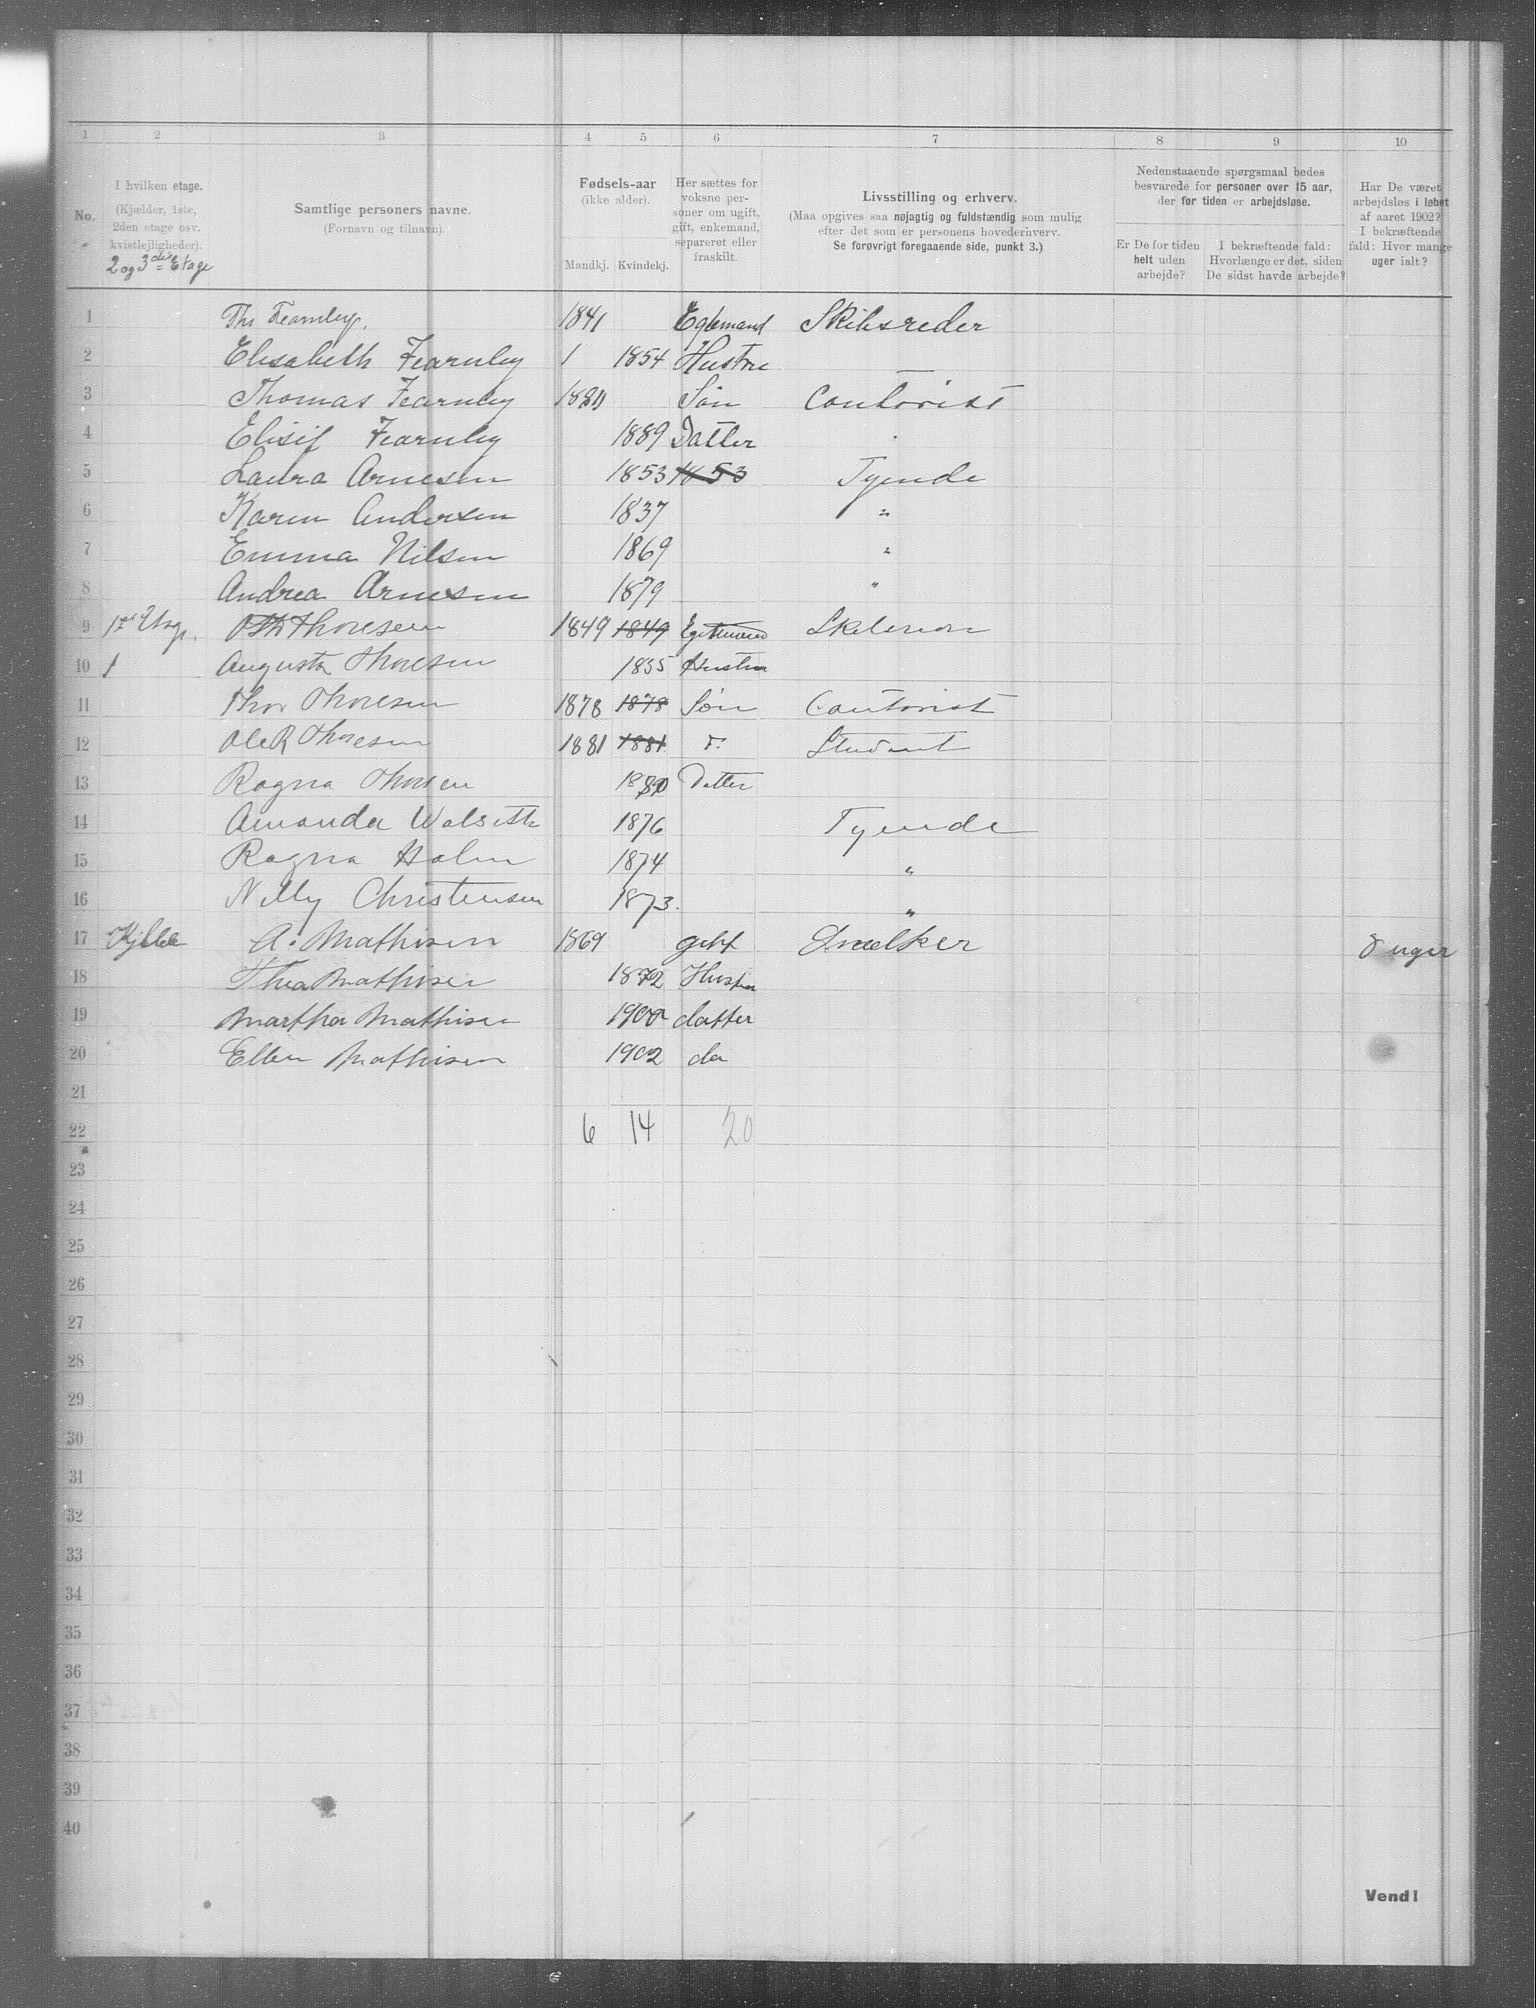 1 2 3 4 5 6 7 8 9 10
No.
I hvilken etage.
(Kjælder, 1ste,
2den etage osv.
kvistlejligheder).
2 og 3die Etage
Samtlige personers navne.
(Fornavn og tilnavn).
Fødsels-aar
(ikke alder).
Mandkj. Kvindekj.
Her sættes for
voksne per-
soner om ugift,
gift, enkemand,
separeret eller
fraskilt.
Livsstilling og erhverv.
(Maa opgives saa nøjagtig og fuldstændig som mulig
efter det som er personens hovederhverv.
Se forøvrigt foregaaende side, punkt 3.)
Nedenstaaende spørgsmaal bedes
besvarede for personer over 15 aar,
der for tiden er arbejdsløse.
Er De for tiden
helt uden
arbejde?
I bekræftende fald:
Hvorlænge er det, siden
De sidst havde arbejde?
Har De været
arbejdsløs i løbet
af aaret 1902?
I bekræftende
fald: Hvor mange
uger ialt?
1 Ths Fearnley. 1841 Skibsreder
2 Elisabeth Fearnley 1 1854 Hustru
3 Thomas Fearnley Søn Contorist
4 Elisif Fearnley 1889 Datter
5 Laura Arnesen 1853 1853 Tyende
6 Karen Andersen 1837 "
7 Emma Nilsen 1869 "
8 Andrea Arnesen 1879 "
9 Thoresen 1849 1849
10 1 Augusta Thoresen 1855 Hustru
11 Thor Thoresen 1878 1878 Søn Contorist
12 Thoresen 1881 1881 Student
13 Ragna Thoresen Datter
14 Amanda Wolseth 1876 Tyende
15 Ragna Holm 1874 "
16 Nelly Christensen 1873. "
17 A. Mathisen 1869 gift Snedker 8 uger
18 Thea Mathisen 1872 Hustru
19 Martha Mathisen 1900 datter
20 Ellen Mathisen 1902 do
21
22 6 14 20
23
24
25
26
27
28
29
30
31
32
33
34
35
36
37
38
39
40
Vend!